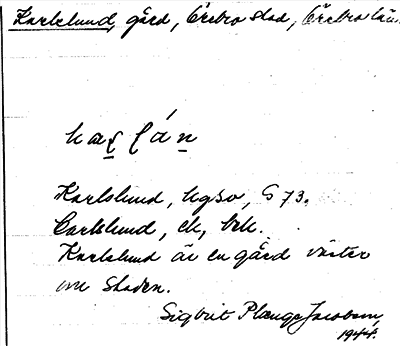 Karlslund, gård, Örebro stad, Örebro län.
Karlslund, hgso, G 73.
Carlslund, ek, btk.
Karlslund är en gård väster
om staden.
Sigbrit Plænge Jacobson,
1944.